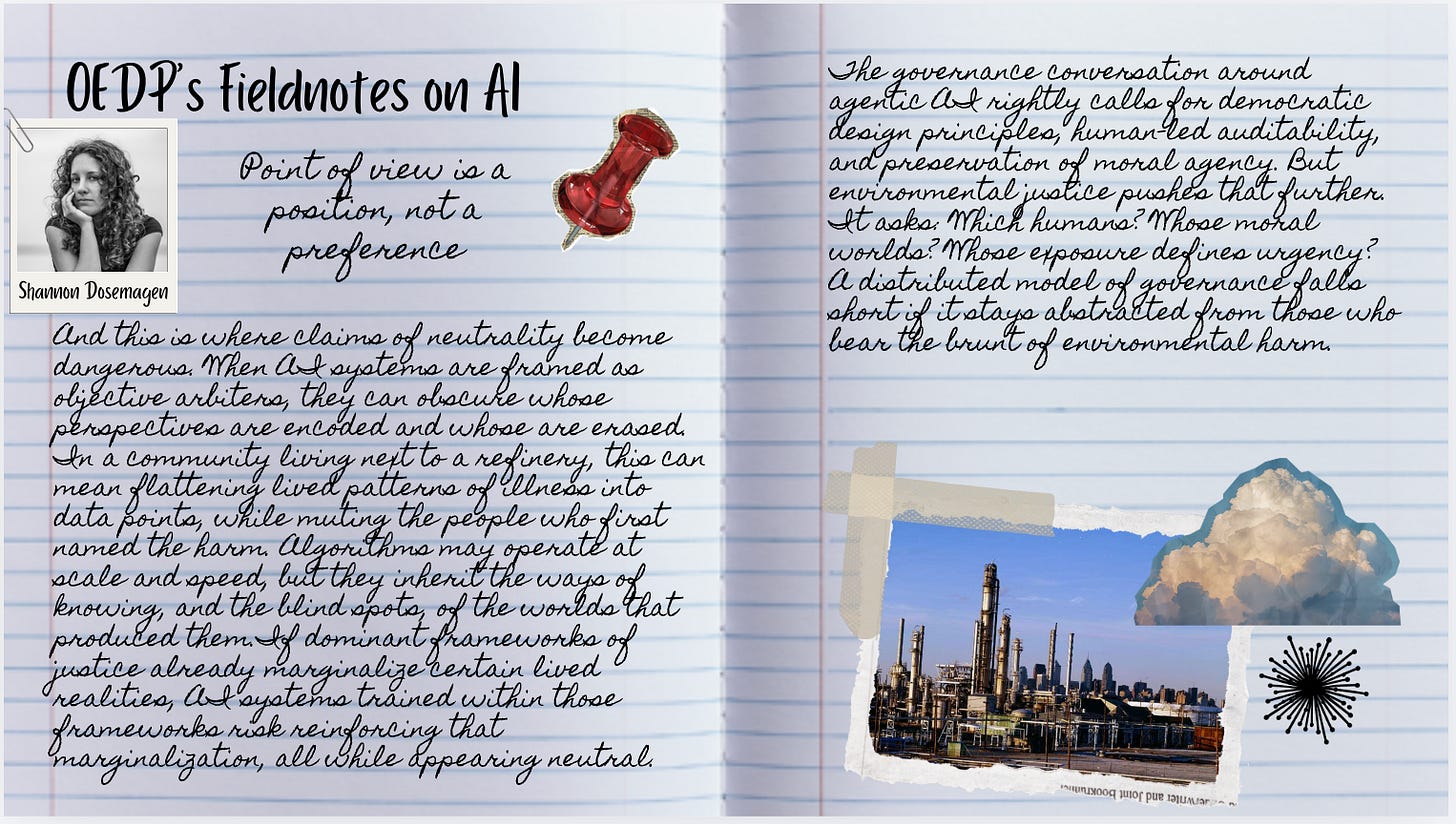 OEDP's Fieldnotes on AI
Shannon Dosemagen
Point of view is a
position, not a
preference
And this is where claims of neutrality become
dangerous. When AI systems are framed as
objective arbiters, they can obscure whose
perspectives are encoded and whose are erased.
In a community living next to a refinery, this can
mean flattening lived patterns of illness into
data points, while muting the people who first
named the harm. Algorithms may operate at
scale and speed, but they inherit the ways of
knowing, and the blind spots, of the worlds that
produced them. If dominant frameworks of
justice already marginalize certain lived
realities, AI systems trained within those
frameworks risk reinforcing that
marginalization, all while appearing neutral.
The governance conversation around
agentic AI rightly calls for democratic
design principles, human-led auditability,
and preservation of moral agency. But
environmental justice pushes that further.
It asks: Which humans? Whose moral
worlds? Whose exposure defines urgency?
A distributed model of governance falls
short if it stays abstracted from those who
bear the brunt of environmental harm.
and Joint Bookrunner